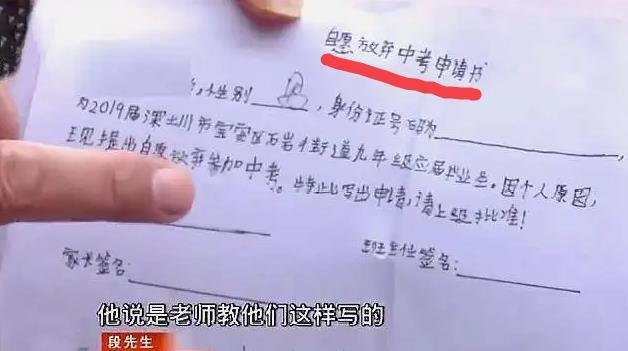 自愿放弃中考申请书
,性别____,身份证号码为________,
为2019届深圳市宝安区石岩街道九年级应届毕业生。因个人原因,
现提出自愿放弃参加中考。特此写出申请,请上级批准!
家长签名:________ 班主任签名:________
他说是老师教他们这样写的
段先生